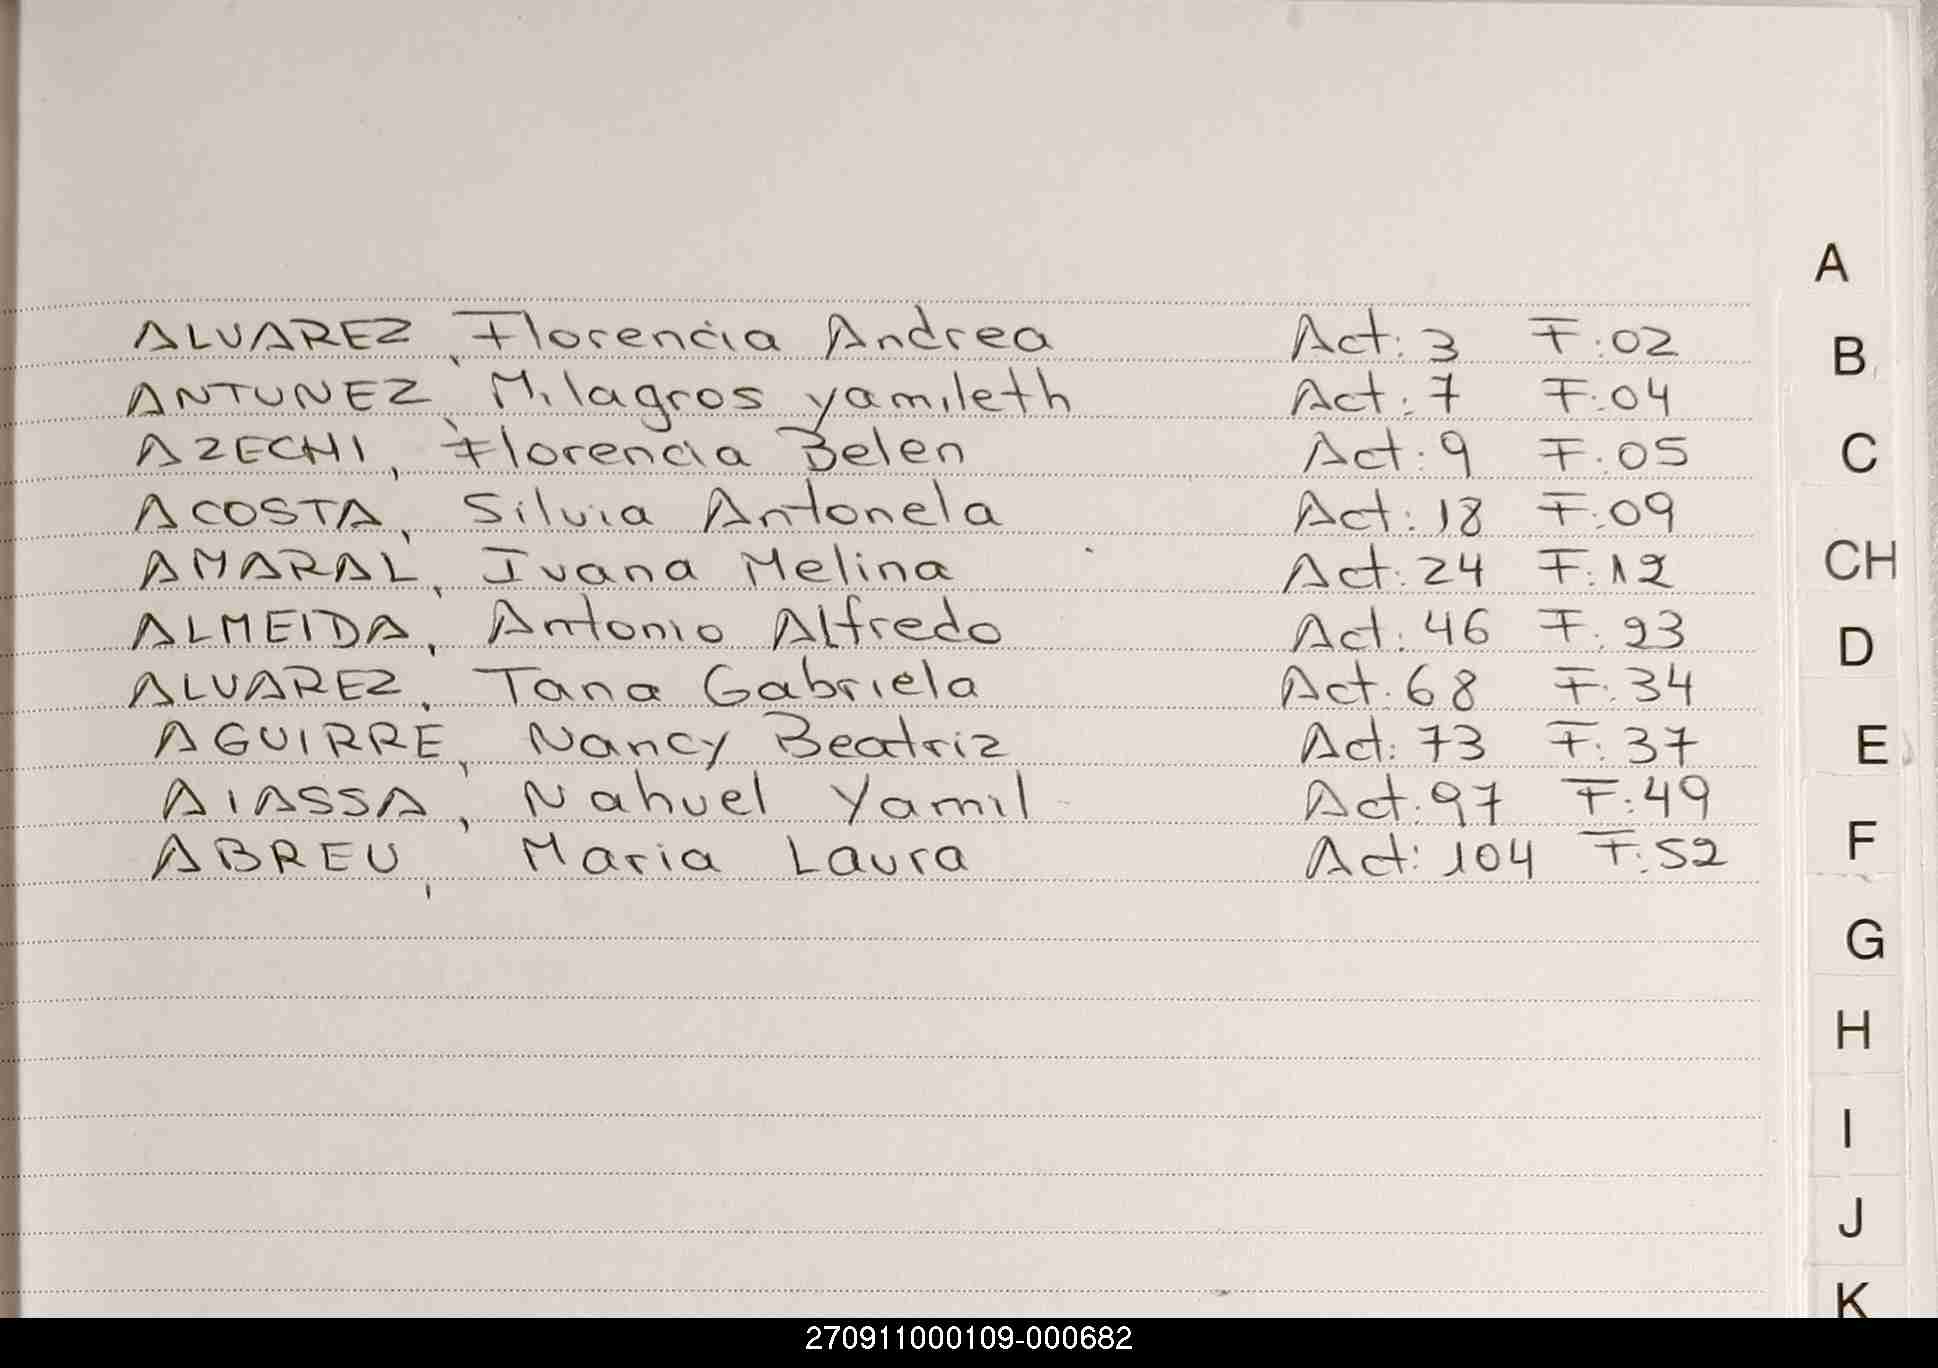 ALVAREZ, Florencia Andrea Act: 3 F:02
ANTUNEZ, Milagros yamileth Act: 7 F:04
AZECHI, Florencia Belen Act: 9 F:05
ACOSTA, Silvia Antonela Act: 18 F:09
AMARAL, Ivana Melina Act: 24 F:12
ALMEIDA, Antonio Alfredo Act: 46 F:23
ALVAREZ, Tana Gabriela Act: 68 F:34
AGUIRRE, Nancy Beatriz Act: 73 F:37
AIASSA, Nahuel Yamil Act: 97 F:49
ABREU, Maria Laura Act: 104 F:52
A
B
C
CH
D
E
F
G
H
I
J
K
270911000109-000682